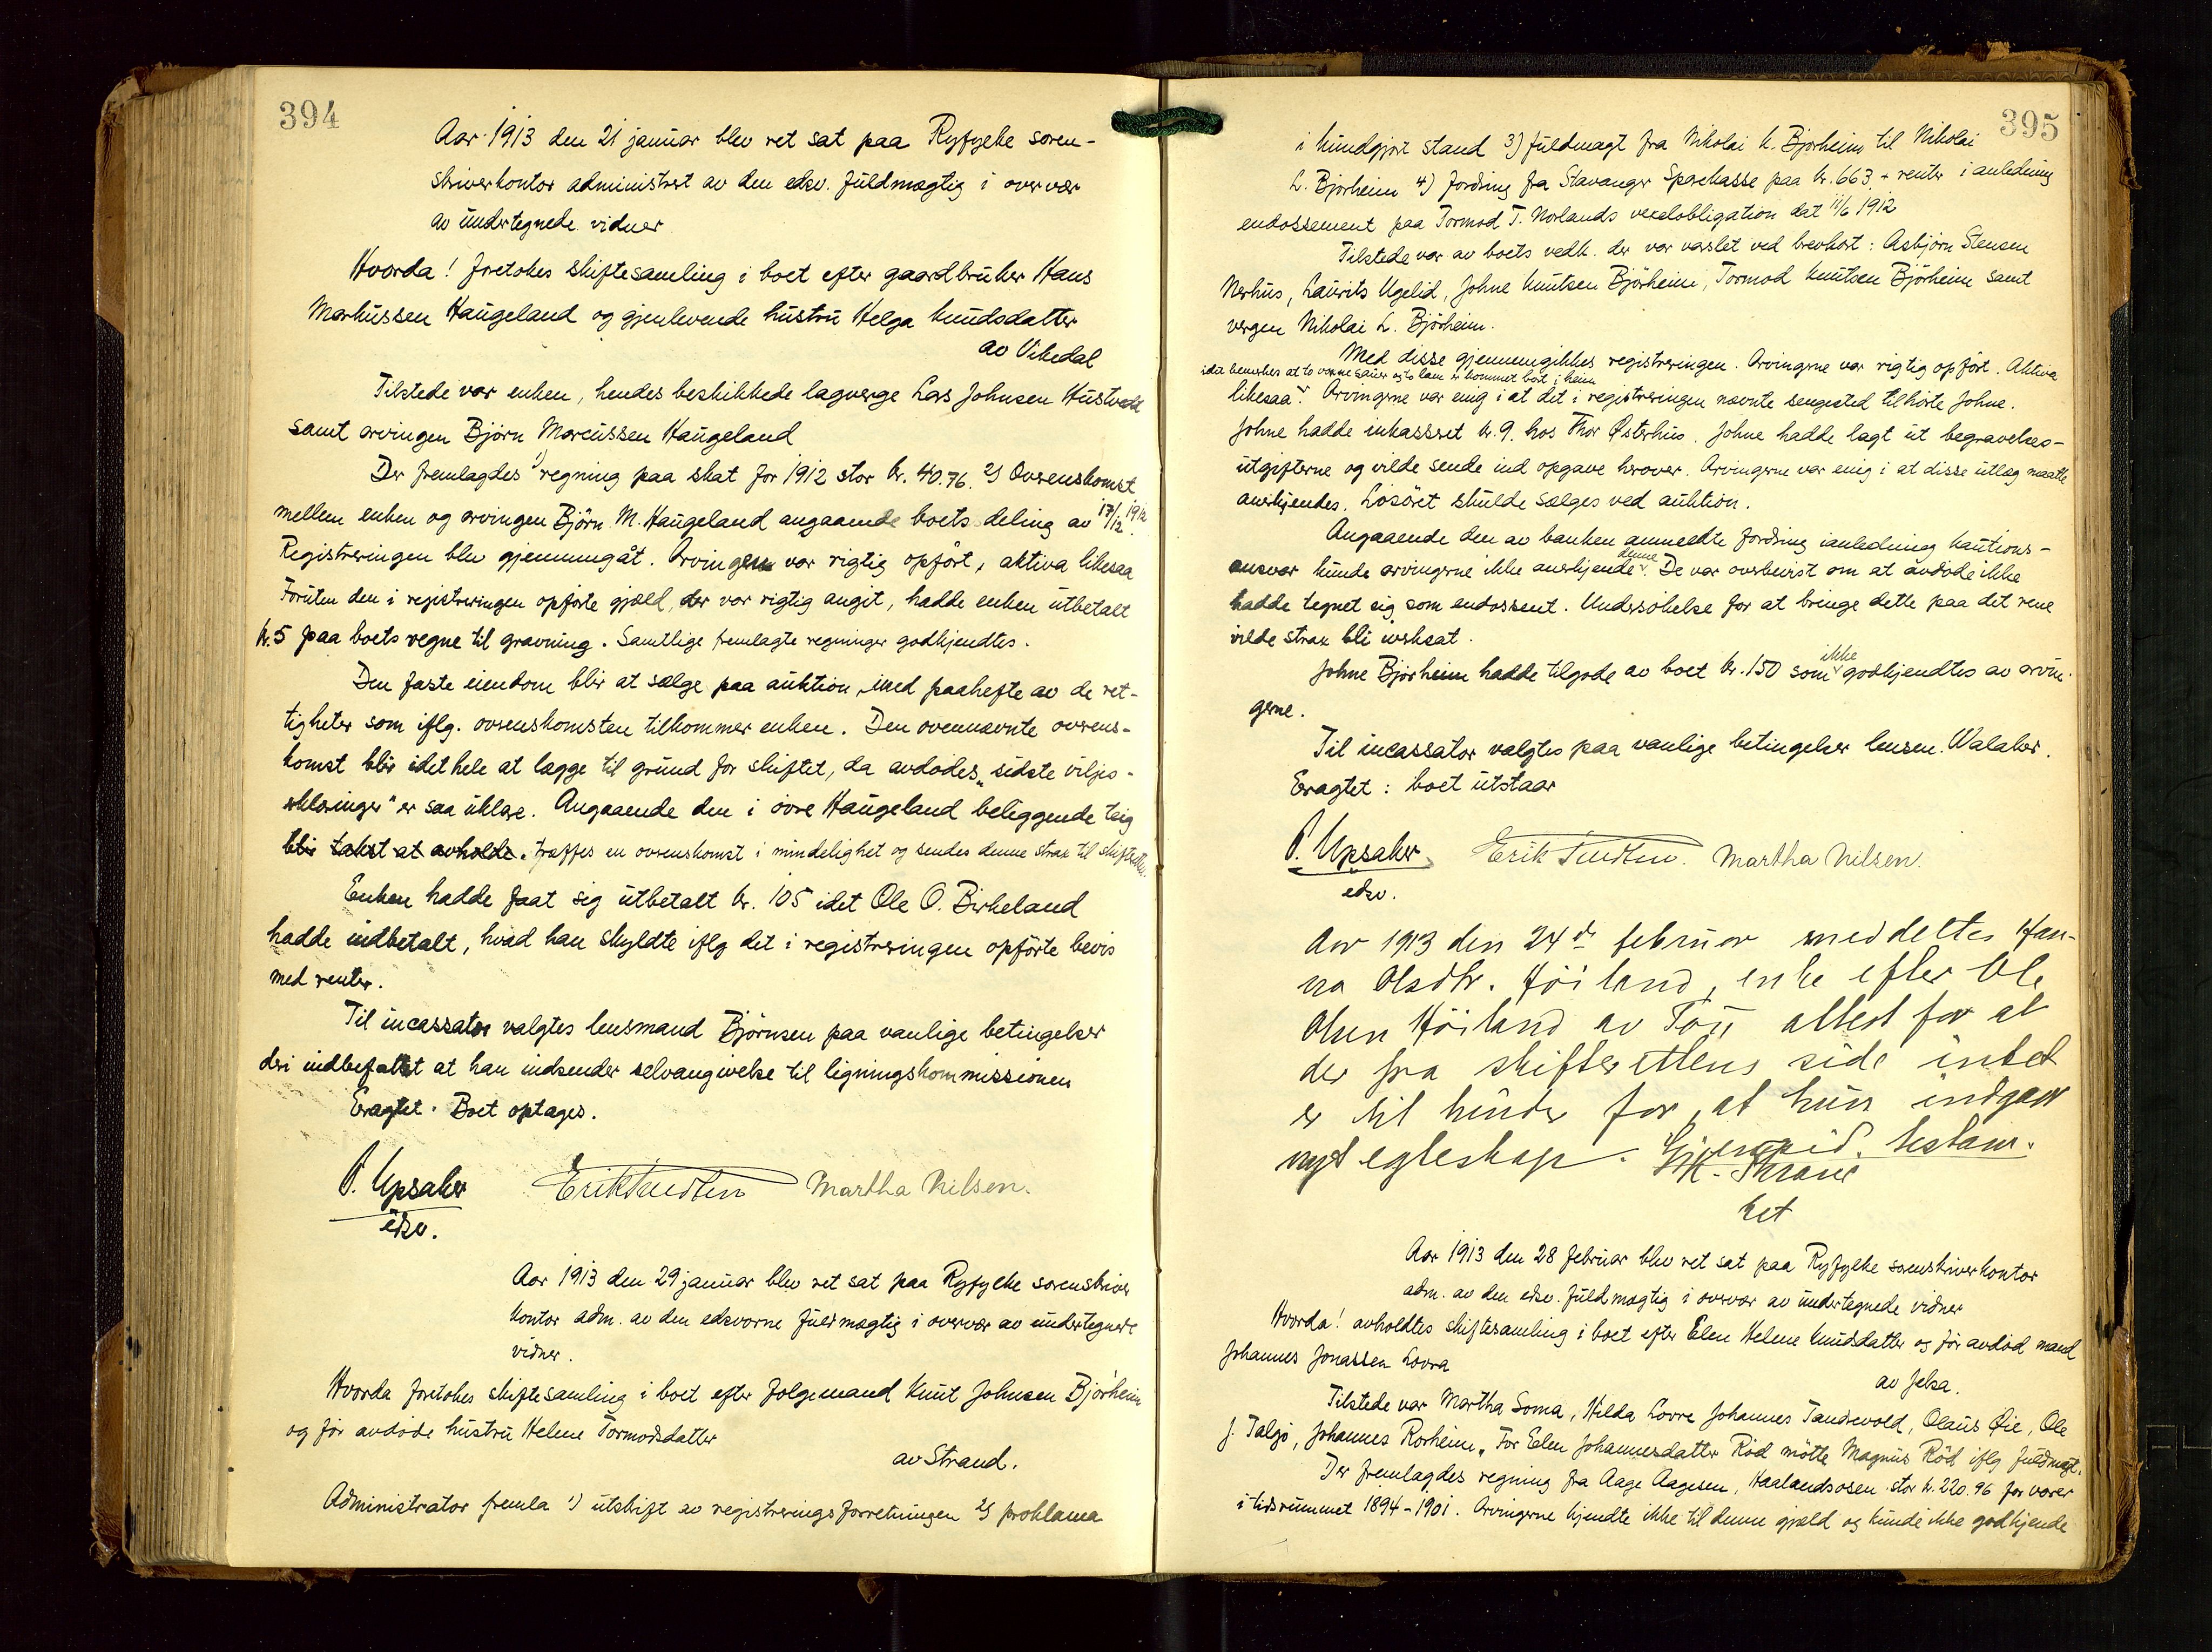 394
Aar 1913 den 21 januar blev ret sat paa Ryfylke soren-
skriverkontor administrert av den edsv. fuldmægtig i overvær
av undertegnede vidner
Hvorda! foretokes skiftesamling i boet efter gaardbruker Hans
Markussen Haugeland og gjenlevende hustru Helga Knudsdatter
av Vikedal
Tilstede var enken, hendes beskikkede lagverge Lars Johnsen Hustvedt
samt arvingen Björn Marcussen Haugeland
Der fremlagdes 1) regning paa skat for 1912 stor kr. 40.76. 2) Overenskomst
mellem enken og arvingen Björn M. Haugeland angaaende boets deling av 17/12 1912.
Registreringen blev gjennemgåt. Arvingene var rigtig opført, aktiva likesaa
Foruten den i registreringen opførte gjæld, der var rigtig angit, hadde enken utbetalt
kr. 5 paa boets vegne til gravning. Samtlige fremlagte regninger godkjendtes.
Den faste eiendom blir at sælge paa auktion, med paahefte av de ret-
tigheter som iflg. overenskomsten tilkommer enken. Den ovennævnte overens-
komst blir idethele at lægge til grund for skiftet, da avdødes "sidste viljes-
erklæringer" er saa uklare. Angaaende den i övre Haugeland beliggende teig
blir takst at avholde. træffes en overenskomst i mindelighet og sendes denne strax til skifteretten.
Enken hadde faat sig utbetalt kr. 105 idet Ole O. Birkeland
hadde indbetalt, hvad han skyldte iflg det i registreringen opförte bevis
med renter.
Til incassator valgtes lensmand Björnsen paa vanlige betingelser
deri indbefattet at han indsender selvangivelse til ligningskommissionen
Eragtet: Boet optages.
P. Upsaker Erik Martha Nilsen.
edsv.
Aar 1913 den 29 januar blev ret sat paa Ryfylke sorenskriver
kontor adm. av den edsvorne fuldmægtig i overvær av undertegnede
vidner.
Hvorda foretokes skiftesamling i boet efter folgemand Knut Johnsen Bjørheim
og før avdøde hustru Helene Tormodsdatter
av Strand.
Administrator fremla 1) utskift av registreringsforretningen 2) proklama
395
i kundgjort stand 3) fuldmagt fra Nikolai K. Bjørheim til Nikolai
L. Bjørheim 4) fordring fra Stavanger Sparekasse paa kr. 663 + renter i anledning
endossement paa Tormod T. Norlands vexelobligation dat 11/6 1912
Tilstede var av boets vedk. der var varslet ved brevkort: Asbjørn Stensen
Nerhus, Laurits Ugelid, Johne Knutsen Björheim, Tormod Knutsen Björheim samt
vergen Nikolai L. Björheim.
Med disse gjennemgikkes registreringen. Arvingerne var rigtig opfört. Aktiva
idet bemerkes at to voxne sauer og to lam er kommet bort i heien
likesaa. Arvingerne var enig i at det i registreringen nævnte sengested tilhörte Johne.
Johne hadde inkassert kr. 9. hos Thor Østerhus. Johne hadde lagt ut begravelses-
utgifterne og vilde sende ind opgave herover. Arvingerne var enig i at disse utlæg maatte
anerkjendes. Løsöret skulde sælges ved auktion.
Angaaende den av banken anmeldte fordring ianledning kautions-
ansvar kunde arvingerne ikke anerkjende denne. De var overbevist om at avdøde ikke
hadde tegnet sig som endossent. Undersökelse for at bringe dette paa det rene
vilde strax bli iverksat.
Johne Bjørheim hadde tilgode av boet kr. 150 som ikke godkjendtes av arvin-
gerne.
Til incassator valgtes paa vanlige betingelser lensm. Walaker.
Eragtet: boet utstaar
P. Upsaker Erik Martha Nilsen.
edsv.
Aar 1913 den 24de februar meddeltes Han-
na Olsdtr. Höiland, enke efter Ole
Olsen Höiland av Tou attest for at
der fra skifterettens side intet
er til hinder for, at hun indgaar
nyt egteskap. Gjensid. testam.
Thrane
kst
Aar 1913 den 28 februar blev ret sat paa Ryfylke sorenskriverkontor
adm. av den edsv. fuldmægtig i overvær av undertegnede vidner
Hvorda! avholdtes skiftesamling i boet efter Elen Helene Knudsdatter og før avdød mand
Johannes Jonassen Lovra
av Jelsa.
Tilstede var Martha Soma, Hilda Lovre Johannes Tandrevold, Olaus Øie, Ole
J. Talgø, Johannes Rorheim. For Elen Johannesdatter Röd mötte Magnus Röd iflg fuldmagt.
Der fremlagdes regning fra Aage Aagesen, Haalandsosen stor kr. 220.96 for varer
i tidsrummet 1894-1901. Arvingerne kjendte ikke til denne gjæld og kunde ikke godkjende